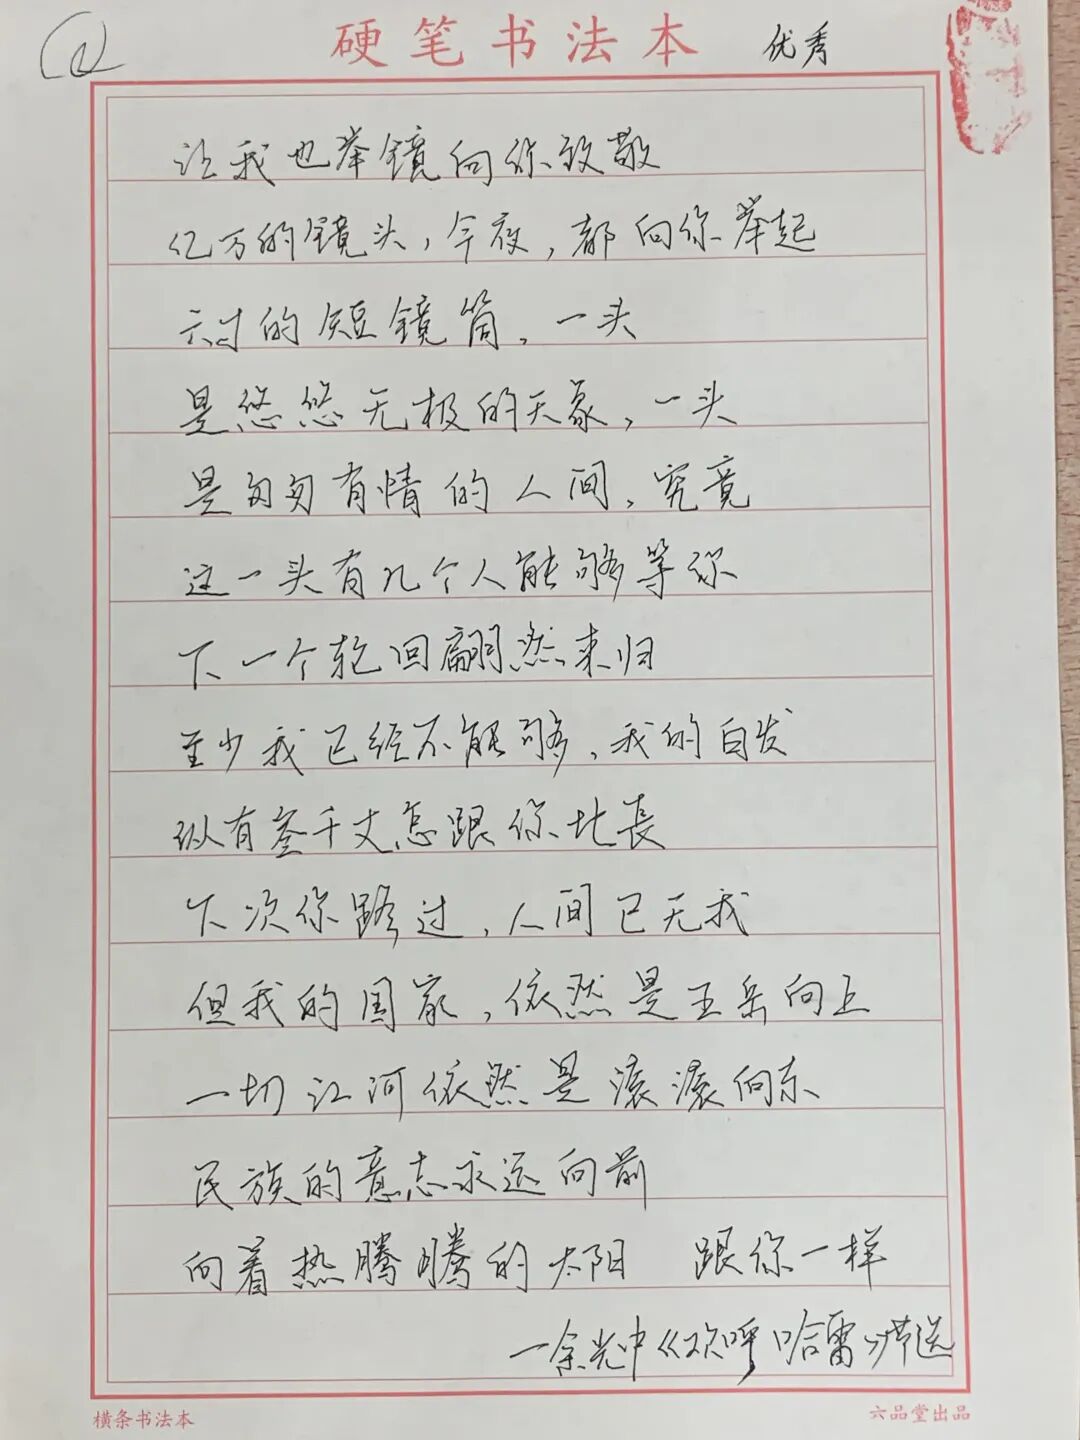 硬笔书法本
优秀
让我也举镜向你致敬
亿万的镜头，今夜，都向你举起
六寸的短镜筒，一头
是悠悠无极的天象，一头
是匆匆有情的人间，究竟
这一头有几个人能够等你
下一个轮回翩然来归
至少我已经不能够，我的白发
纵有叁千丈怎跟你比長
下次你路过，人间已无我
但我的国家，依然是五岳向上
一切江河依然是滚滚向东
民族的意志永远向前
向着热腾腾的太阳 跟你一样
—余光中《欢呼哈雷》节选
横条书法本
六品堂出品